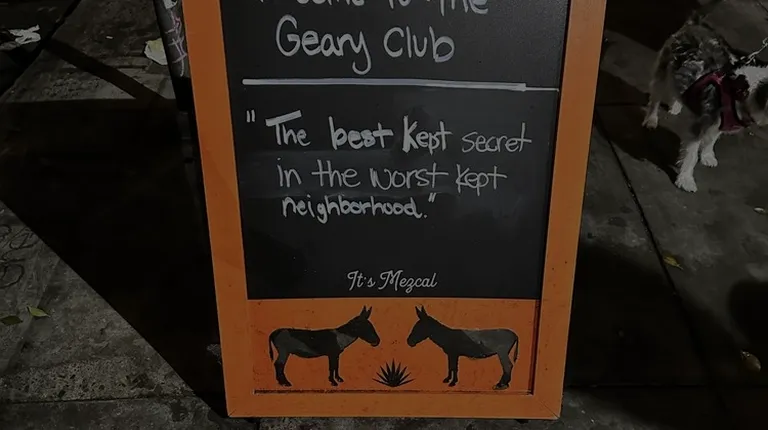 to the
Geary Club
"The best kept secret
in the worst kept
neighborhood."
It's Mezcal